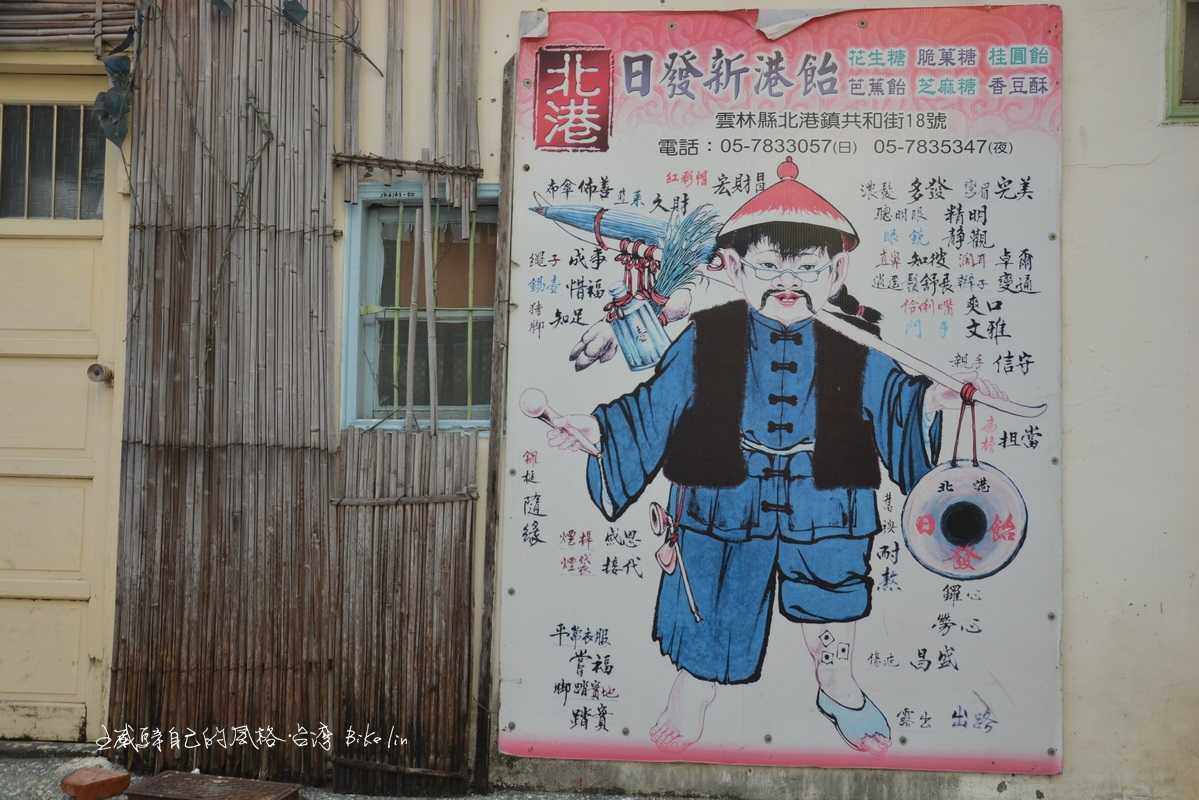 北港
日發新港飴
花生糖 脆菓糖 桂圓飴
芭蕉飴 芝麻糖 香豆酥
雲林縣北港鎮共和街18號
電話：05-7833057(日) 05-7835347(夜)
布傘佈善
久財
紅彩帽 宏財
濃髮 多發 彎眉 完美
聰明眼 精明
眼鏡 靜觀
直鼻 知彼 潤耳 卓爾
逍遙鬚 舒展 辮子 變通
伶俐嘴 爽口
鬥牙 文雅
親手 信守
繩子 成事
錫壺 惜福
豬腳 知足
扁擔 担當
鑼槌
隨緣
北港
日發飴
煙桿 感恩
煙袋 接代
舊襖
耐熬
鑼心
勞心
平常衣服
嘗福
腳踏實地
踏實
傷疤 昌盛
露出 出路
自己的風格 台灣 Biko lin